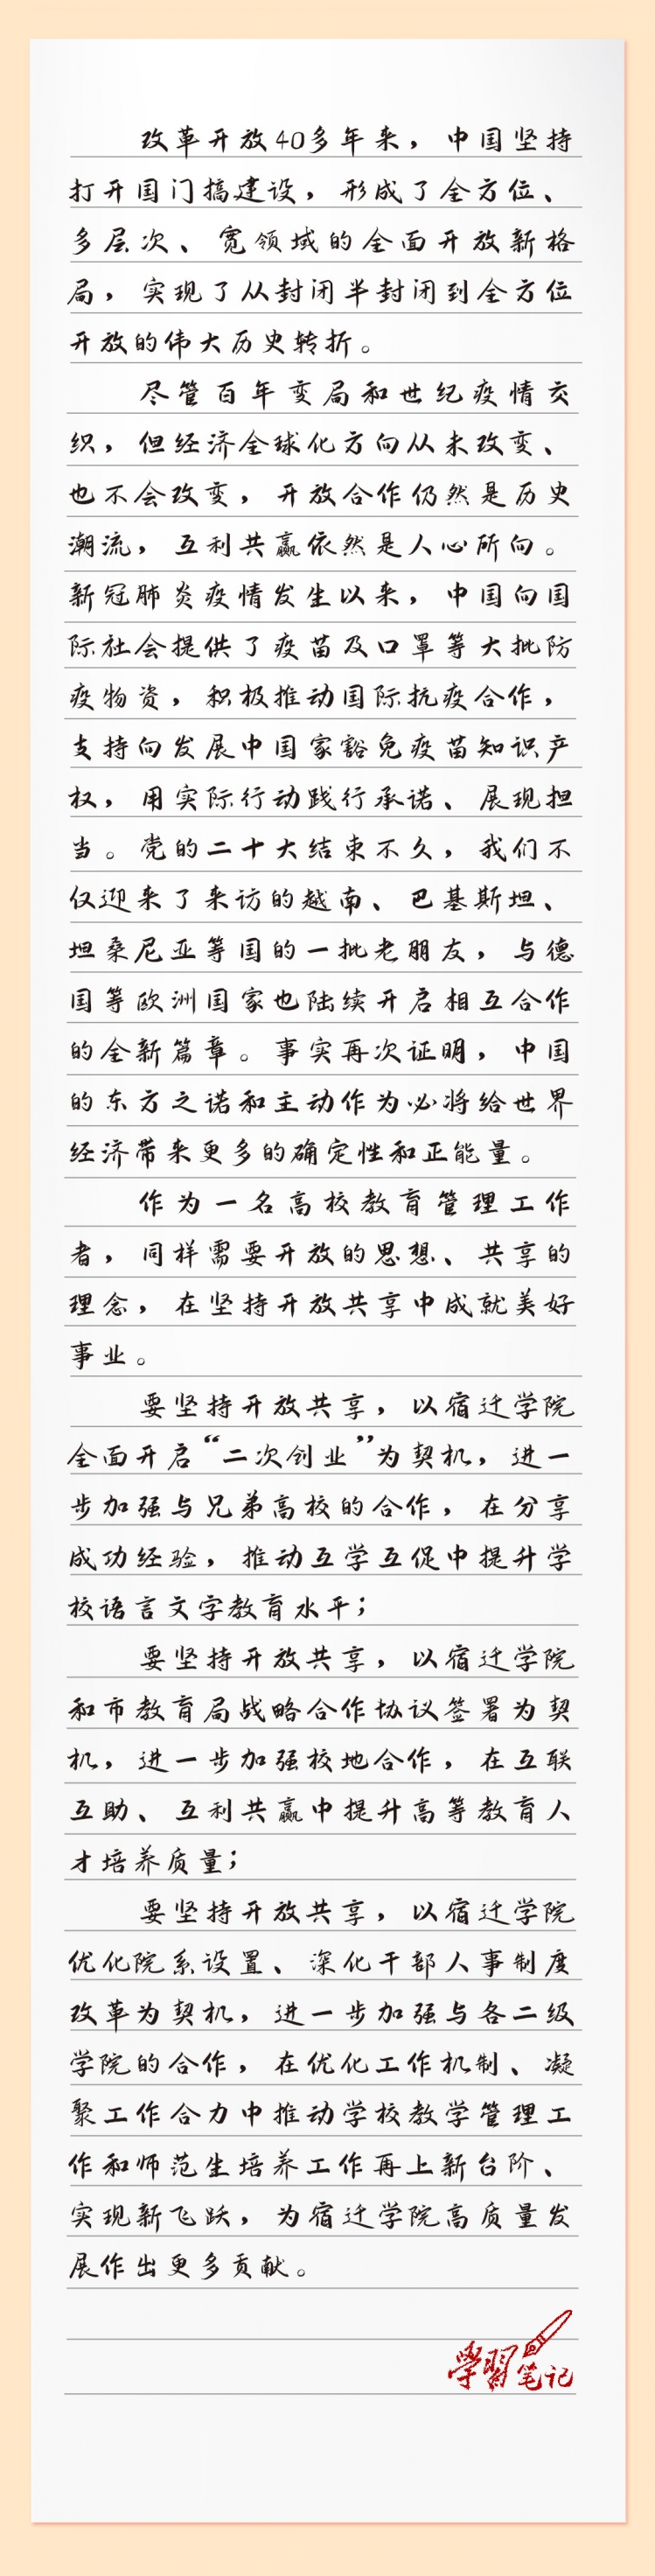 改革开放40多年来，中国坚持
打开国门搞建设，形成了全方位、
多层次、宽领域的全面开放新格
局，实现了从封闭半封闭到全方位
开放的伟大历史转折。
尽管百年变局和世纪疫情交
织，但经济全球化方向从未改变、
也不会改变，开放合作仍然是历史
潮流，互利共赢依然是人心所向。
新冠肺炎疫情发生以来，中国向国
际社会提供了疫苗及口罩等大批防
疫物资，积极推动国际抗疫合作，
支持向发展中国家豁免疫苗知识产
权，用实际行动践行承诺、展现担
当。党的二十大结束不久，我们不
仅迎来了来访的越南、巴基斯坦、
坦桑尼亚等国的一批老朋友，与德
国等欧洲国家也陆续开启相互合作
的全新篇章。事实再次证明，中国
的东方之诺和主动作为必将给世界
经济带来更多的确定性和正能量。
作为一名高校教育管理工作
者，同样需要开放的思想、共享的
理念，在坚持开放共享中成就美好
事业。
要坚持开放共享，以宿迁学院
全面开启“二次创业”为契机，进一
步加强与兄弟高校的合作，在分享
成功经验，推动互学互促中提升学
校语言文字教育水平；
要坚持开放共享，以宿迁学院
和市教育局战略合作协议签署为契
机，进一步加强校地合作，在互联
互助、互利共赢中提升高等教育人
才培养质量；
要坚持开放共享，以宿迁学院
优化院系设置、深化干部人事制度
改革为契机，进一步加强与各二级
学院的合作，在优化工作机制、凝
聚工作合力中推动学校教学管理工
作和师范生培养工作再上新台阶、
实现新飞跃，为宿迁学院高质量发
展作出更多贡献。
學習笔记